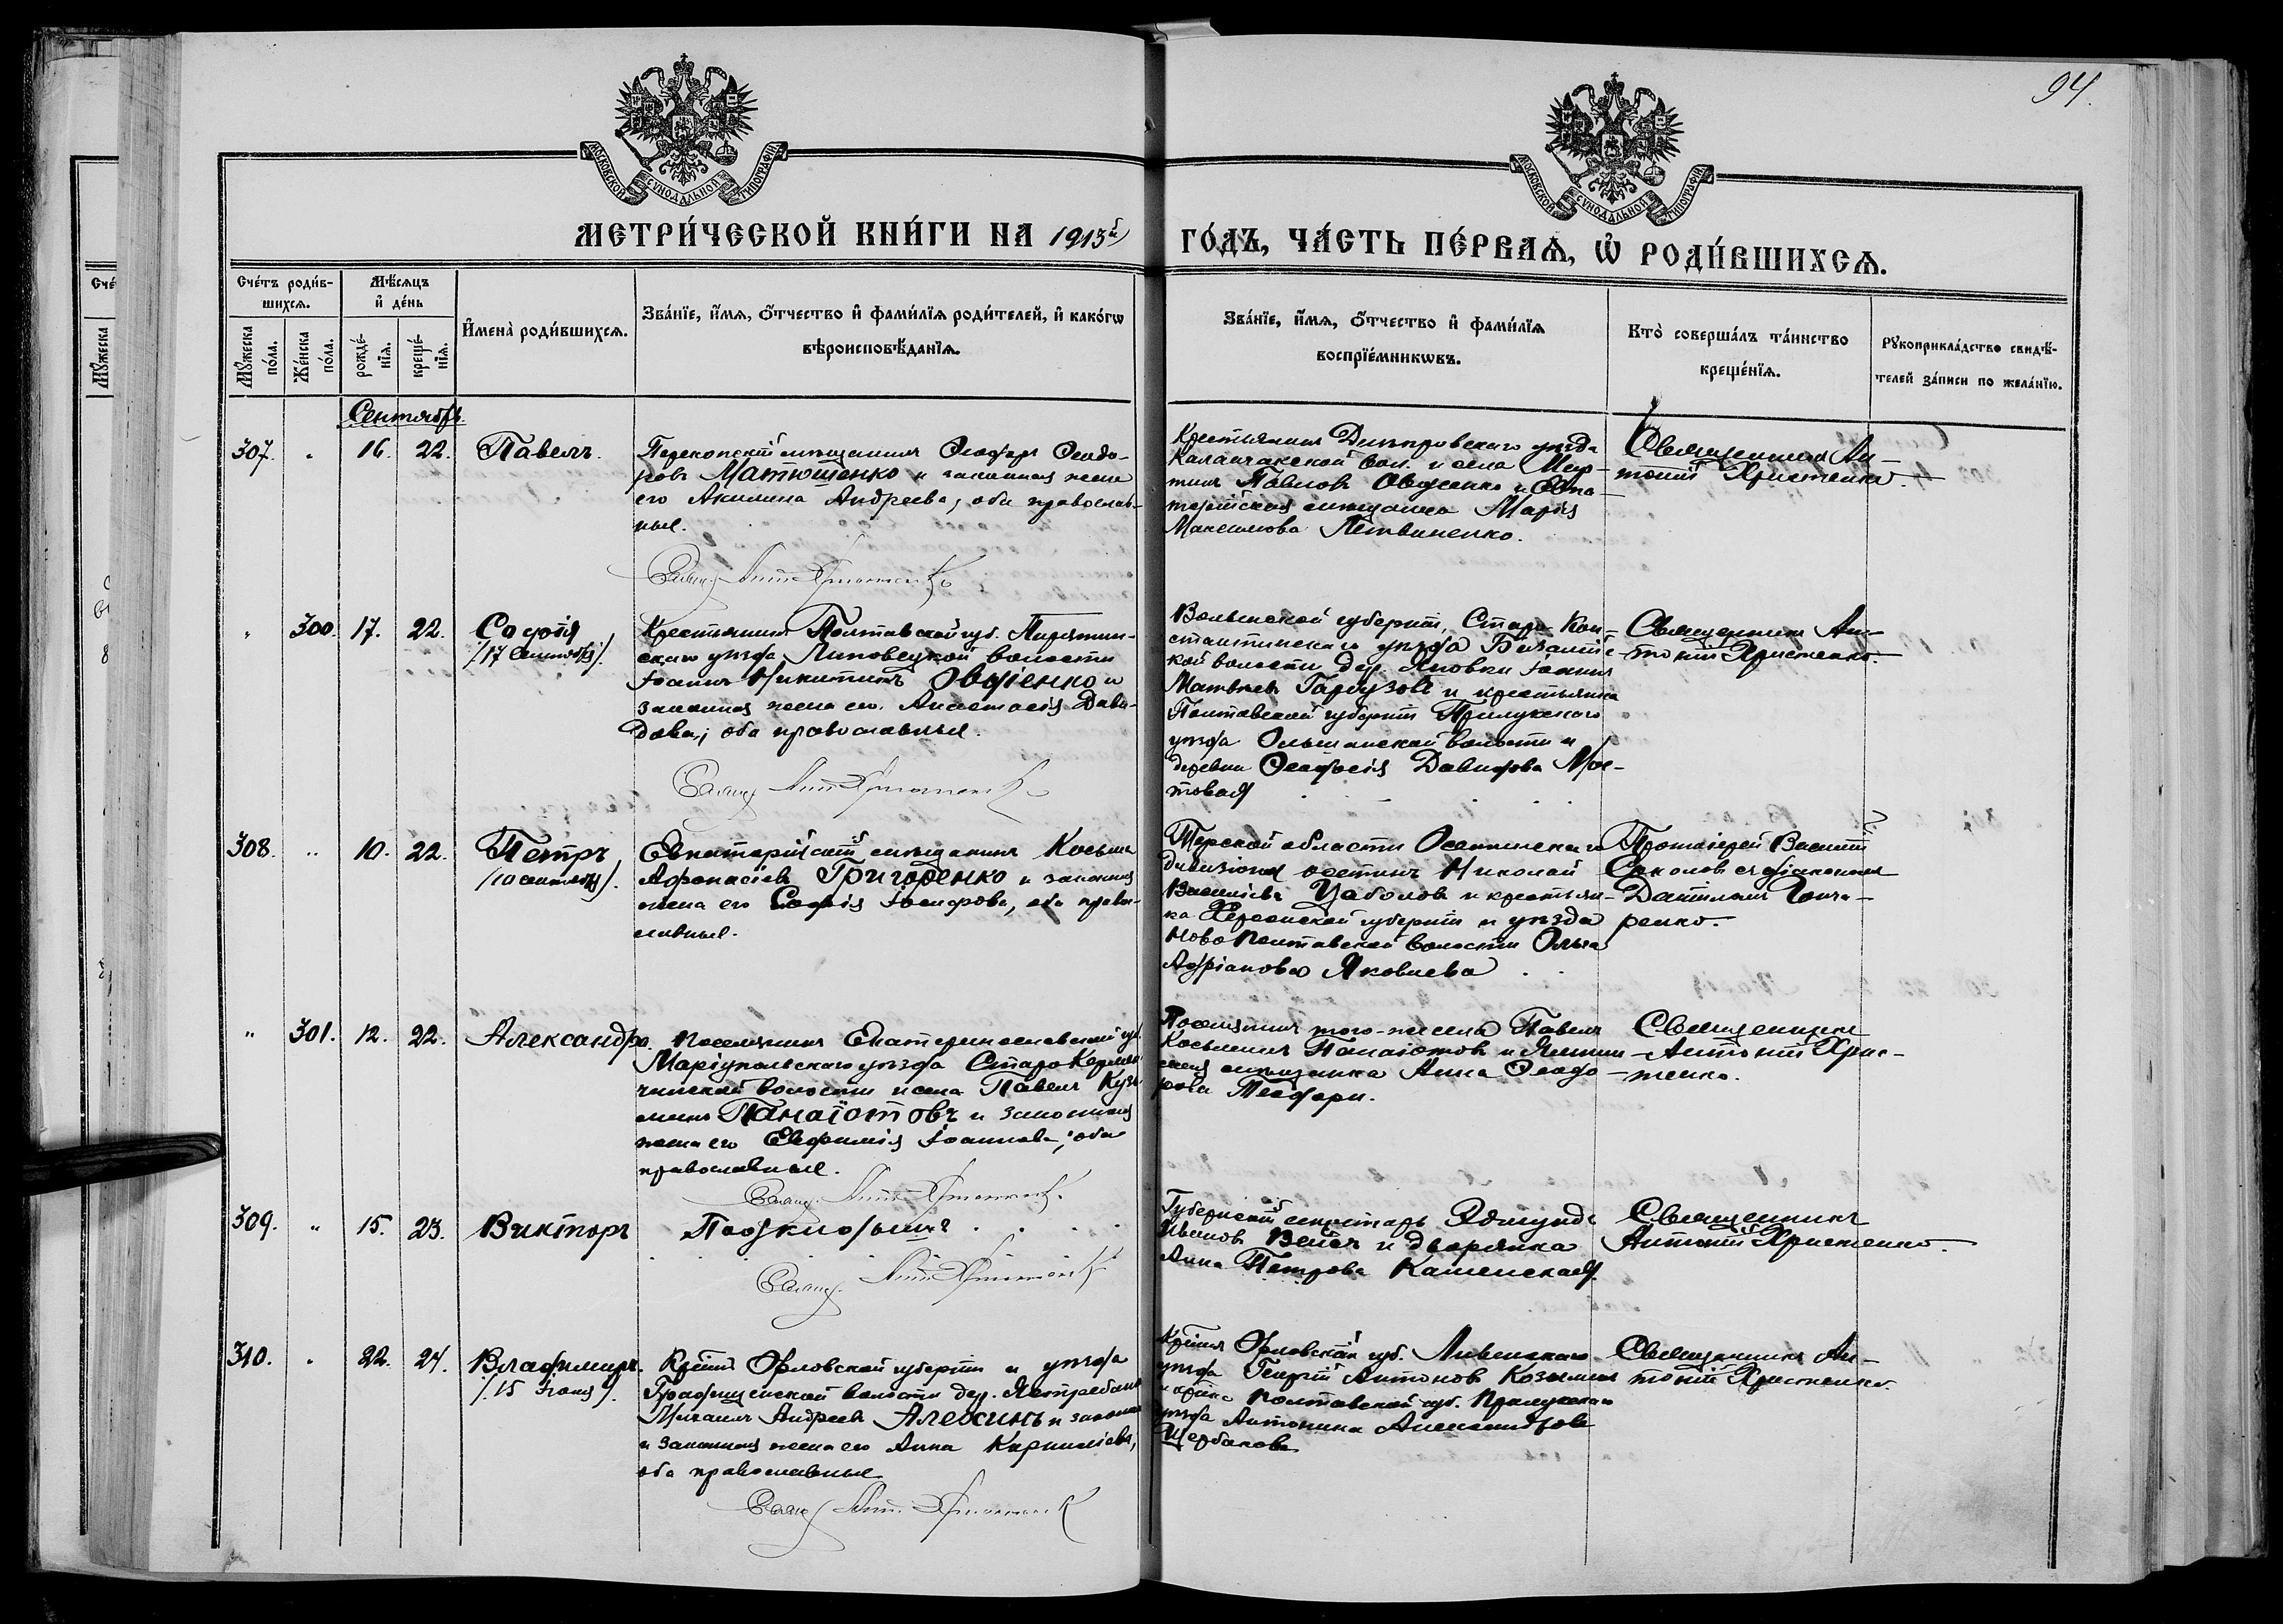 94.
МОСКОВСКОЙ СѴНОДАЛЬНОЙ ТИПОГРАФІИ
МОСКОВСКОЙ СѴНОДАЛЬНОЙ ТИПОГРАФІИ
МЕТРИ́ЧЕСКОЙ КНИ́ГИ НА 1913й ГО́ДЪ, ЧА́СТЬ ПЕ́РВАѦ, Ѡ҆ РОДИ́ВШИХСѦ.
Сче́тъ роди́в-
шихсѧ.
Мѣ́сѧцъ
и҆ де́нь
И҆мена̀ роди́вшихсѧ.
Зва́нїе, и҆́мѧ, ѻ҆́тчество и҆ фами́лїѧ роди́телей, и҆ како́гѡ
вѣроисповѣ́данїѧ.
Зва́нїе, и҆́мѧ, ѻ҆́тчество и҆ фами́лїѧ
воспрїе́мникѡвъ.
Кто̀ соверша́лъ та́инство
креще́нїѧ.
Рꙋкоприкла́дство свидѣ́-
телей за́писи по жела́нїю.
Мꙋ́жеска
по́ла.
Же́нска
по́ла.
рожде́-
нїѧ.
креще́-
нїѧ.
Сентябрь
307. „ 16. 22. Павелъ.
Перекопскій мѣщанинъ Ѳеодоръ Ѳеодо-
ровъ Матюшенко и законная жена
его Акилина Андреева, оба православ-
ные.
Крестьянинъ Днѣпровскаго уѣзда
Каланчакской вол. и села Мар-
тинъ Павловъ Овдѣенко и Евпа-
торійская мѣщанка Марія
Максимова Литвиненко.
Священникъ Ан-
тоній Христенко.
Свящ. Ант. Христенко
„ 300. 17. 22. Софія
/17 Сентября/.
Крестьянинъ Полтавской губ. Пирятин-
скаго уѣзда Липовецкой волости
Іоаннъ Никитинъ Овдіенко и
законная жена его Анастасія Дави-
дова, оба православные.
Волынской губерніи, Старо-Кон-
стантинскаго уѣзда
кой волости дер. Яновки Іоаннъ
Матвѣевъ и крестьянка
Полтавской губерніи Прилукскаго
уѣзда Ольшанской волости и
деревни Ѳеодосія Давидова Мос-
товая
Священникъ Ан-
тоній Христенко.
Свящ. Ант. Христенко
308. „ 10. 22. Петръ
/10 сентября/.
Евпаторійскій мѣщанинъ Косьма
Аѳанасіевъ Григоренко и законная
жена его Софія Іосифова, оба право-
славные.
Терской области Осетинскаго
дивизіона осетинъ Николай
Василіевъ Цаболовъ и крестьян-
ка Херсонской губерніи и уѣзда
Ново Полтавской волости Ольга
Адріанова Яковлева
Протоіерей Василій
Соколовъ съ діакономъ
Даніиломъ Гонча-
ренко.
„ 301. 12. 22. Александра.
Поселянинъ Екатеринославской губ.
Маріупольскаго уѣзда Старо Кермен-
чикской волости и села Павелъ Кузь-
минъ Панаіотовъ и законная
жена его Евфимія Іоаннова, оба
православные.
Поселянинъ того-же села Павелъ
Косьминъ Панаіотовъ и Ялтин-
ская мѣщанка Анна Ѳеодо-
рова Теодори.
Священникъ
Антоній Хрис-
тенко.
Свящ. Ант. Христенко
309. „ 15. 23. Викторъ
Подкидышъ
Губернскій секретарь Эдмундъ
Ивановъ Вейсъ и дворянка
Анна Петрова Каменская.
Священникъ
Антоній Христенко.
Свящ. Ант. Христенко
310. „ 22. 24. Владимиръ.
/15 Іюля/.
Кр-нинъ Орловской губерніи и уѣзда
волости дер.
Михаилъ Андреевъ Алехинъ и законная
и законная жена его Анна Корниліева,
оба православные
Кр-нинъ Орловской губ. Ливенскаго
уѣзда Георгій Антоновъ Козьминъ
и кр-нка Полтавской губ. Прилукскаго
уѣзда Антонина Александрова
Щербакова
Священникъ Ан-
тоній Христенко.
Свящ. Ант. Христенко